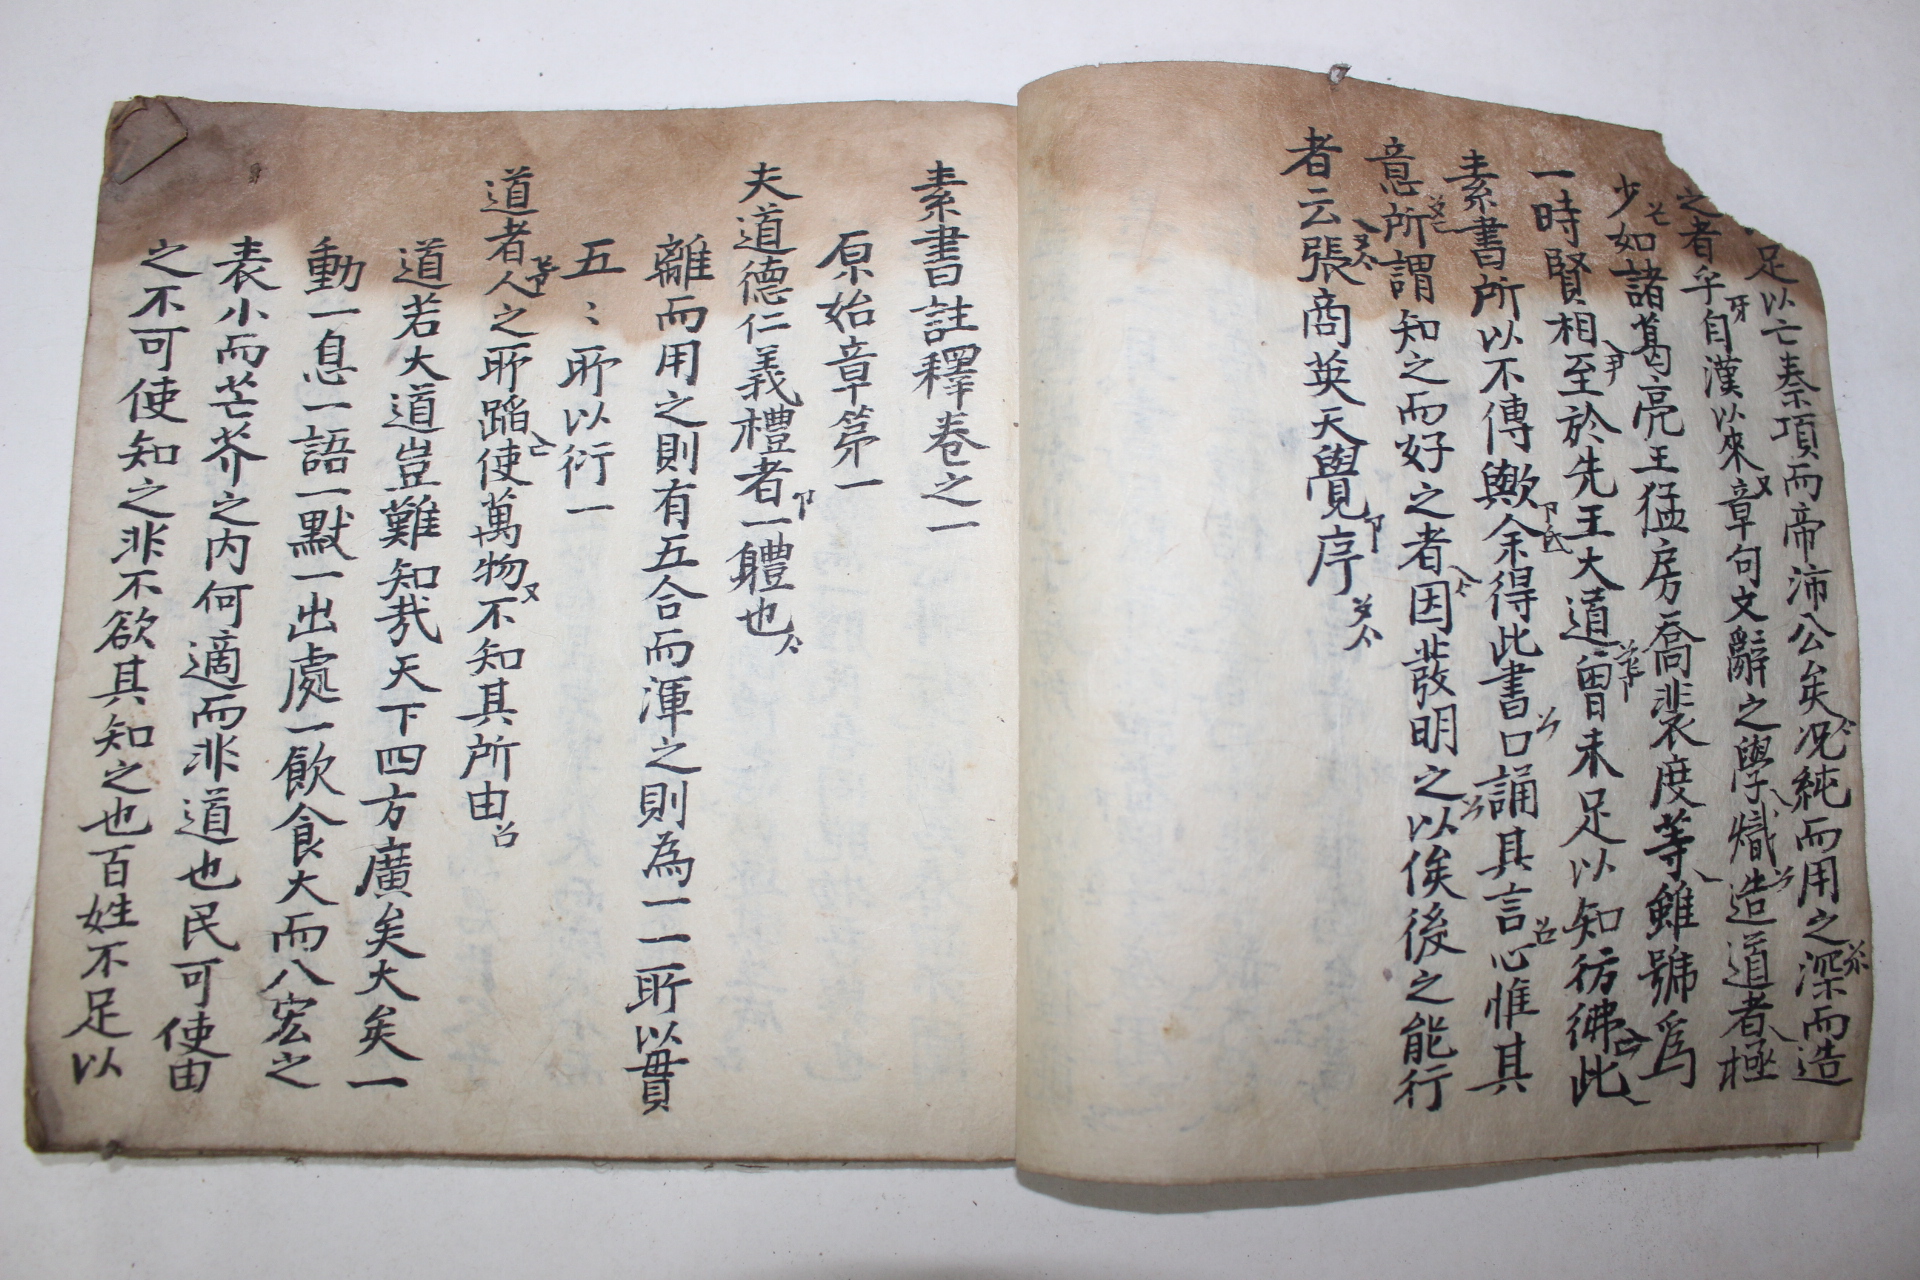 足以亡秦項而帝沛公矣况純而用之深而造
之者乎自漢以來章句文辭之學熾造道者極
少如諸葛亮王猛房喬裴度等雖號爲
一時賢相至於先王大道曾未足以知彷彿此
素書所以不傳歟余得此書口誦其言心惟其
意所謂知之而好之者因發明之以俟後之能行
者云張商英天覺序
素書註釋卷之一
原始章第一
夫道德仁義禮者一軆也
離而用之則有五合而渾之則為一一所以貫
五〻所以衍一
道者人之所蹈使萬物不知其所由
道若大道豈難知哉天下四方廣矣大矣一
動一息一語一默一出處一飮食大而八宏之
表小而芒芥之內何適而非道也民可使由
之不可使知之非不欲其知之也百姓不足以